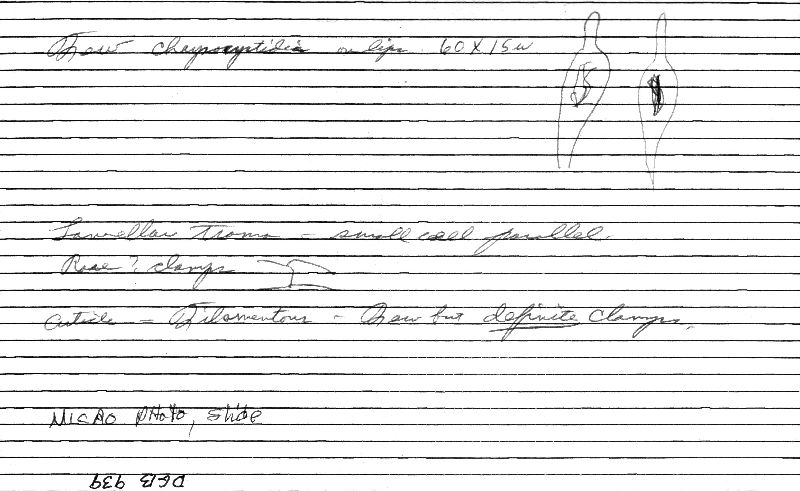 Few chrysocystidia on lips 60 X 15 u
Lamellar trama - small cell parallel.
Rare? clamps
Cuticle - Filamentous - Few but definite clamps.
MICRO PHOTO, Slide
DEB 939